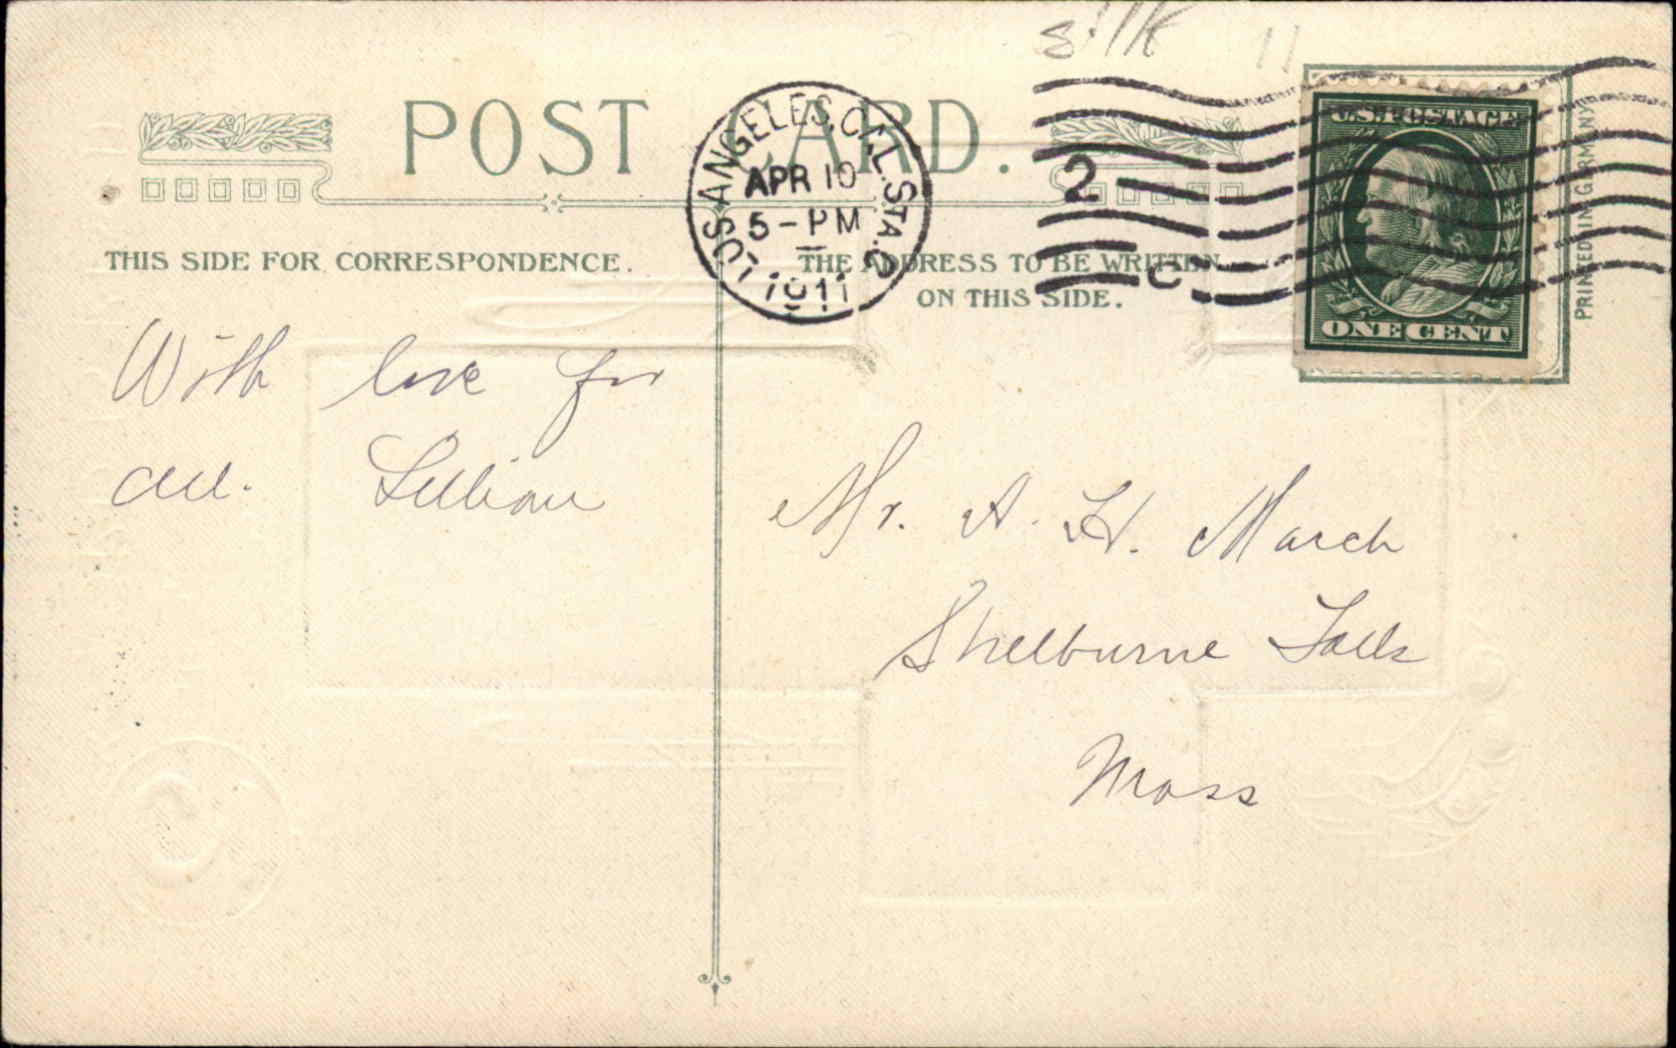 silk 11
POST CARD.
LOS ANGELES, CAL. STA. C
APR 10
5-PM
1911
2
C
U.S. POSTAGE
ONE CENT
PRINTED IN GERMANY
THIS SIDE FOR CORRESPONDENCE.
THE ADDRESS TO BE WRITTEN
ON THIS SIDE.
With love for
all. Lillian
Mr. A. H. March
Shelburne Falls
Mass